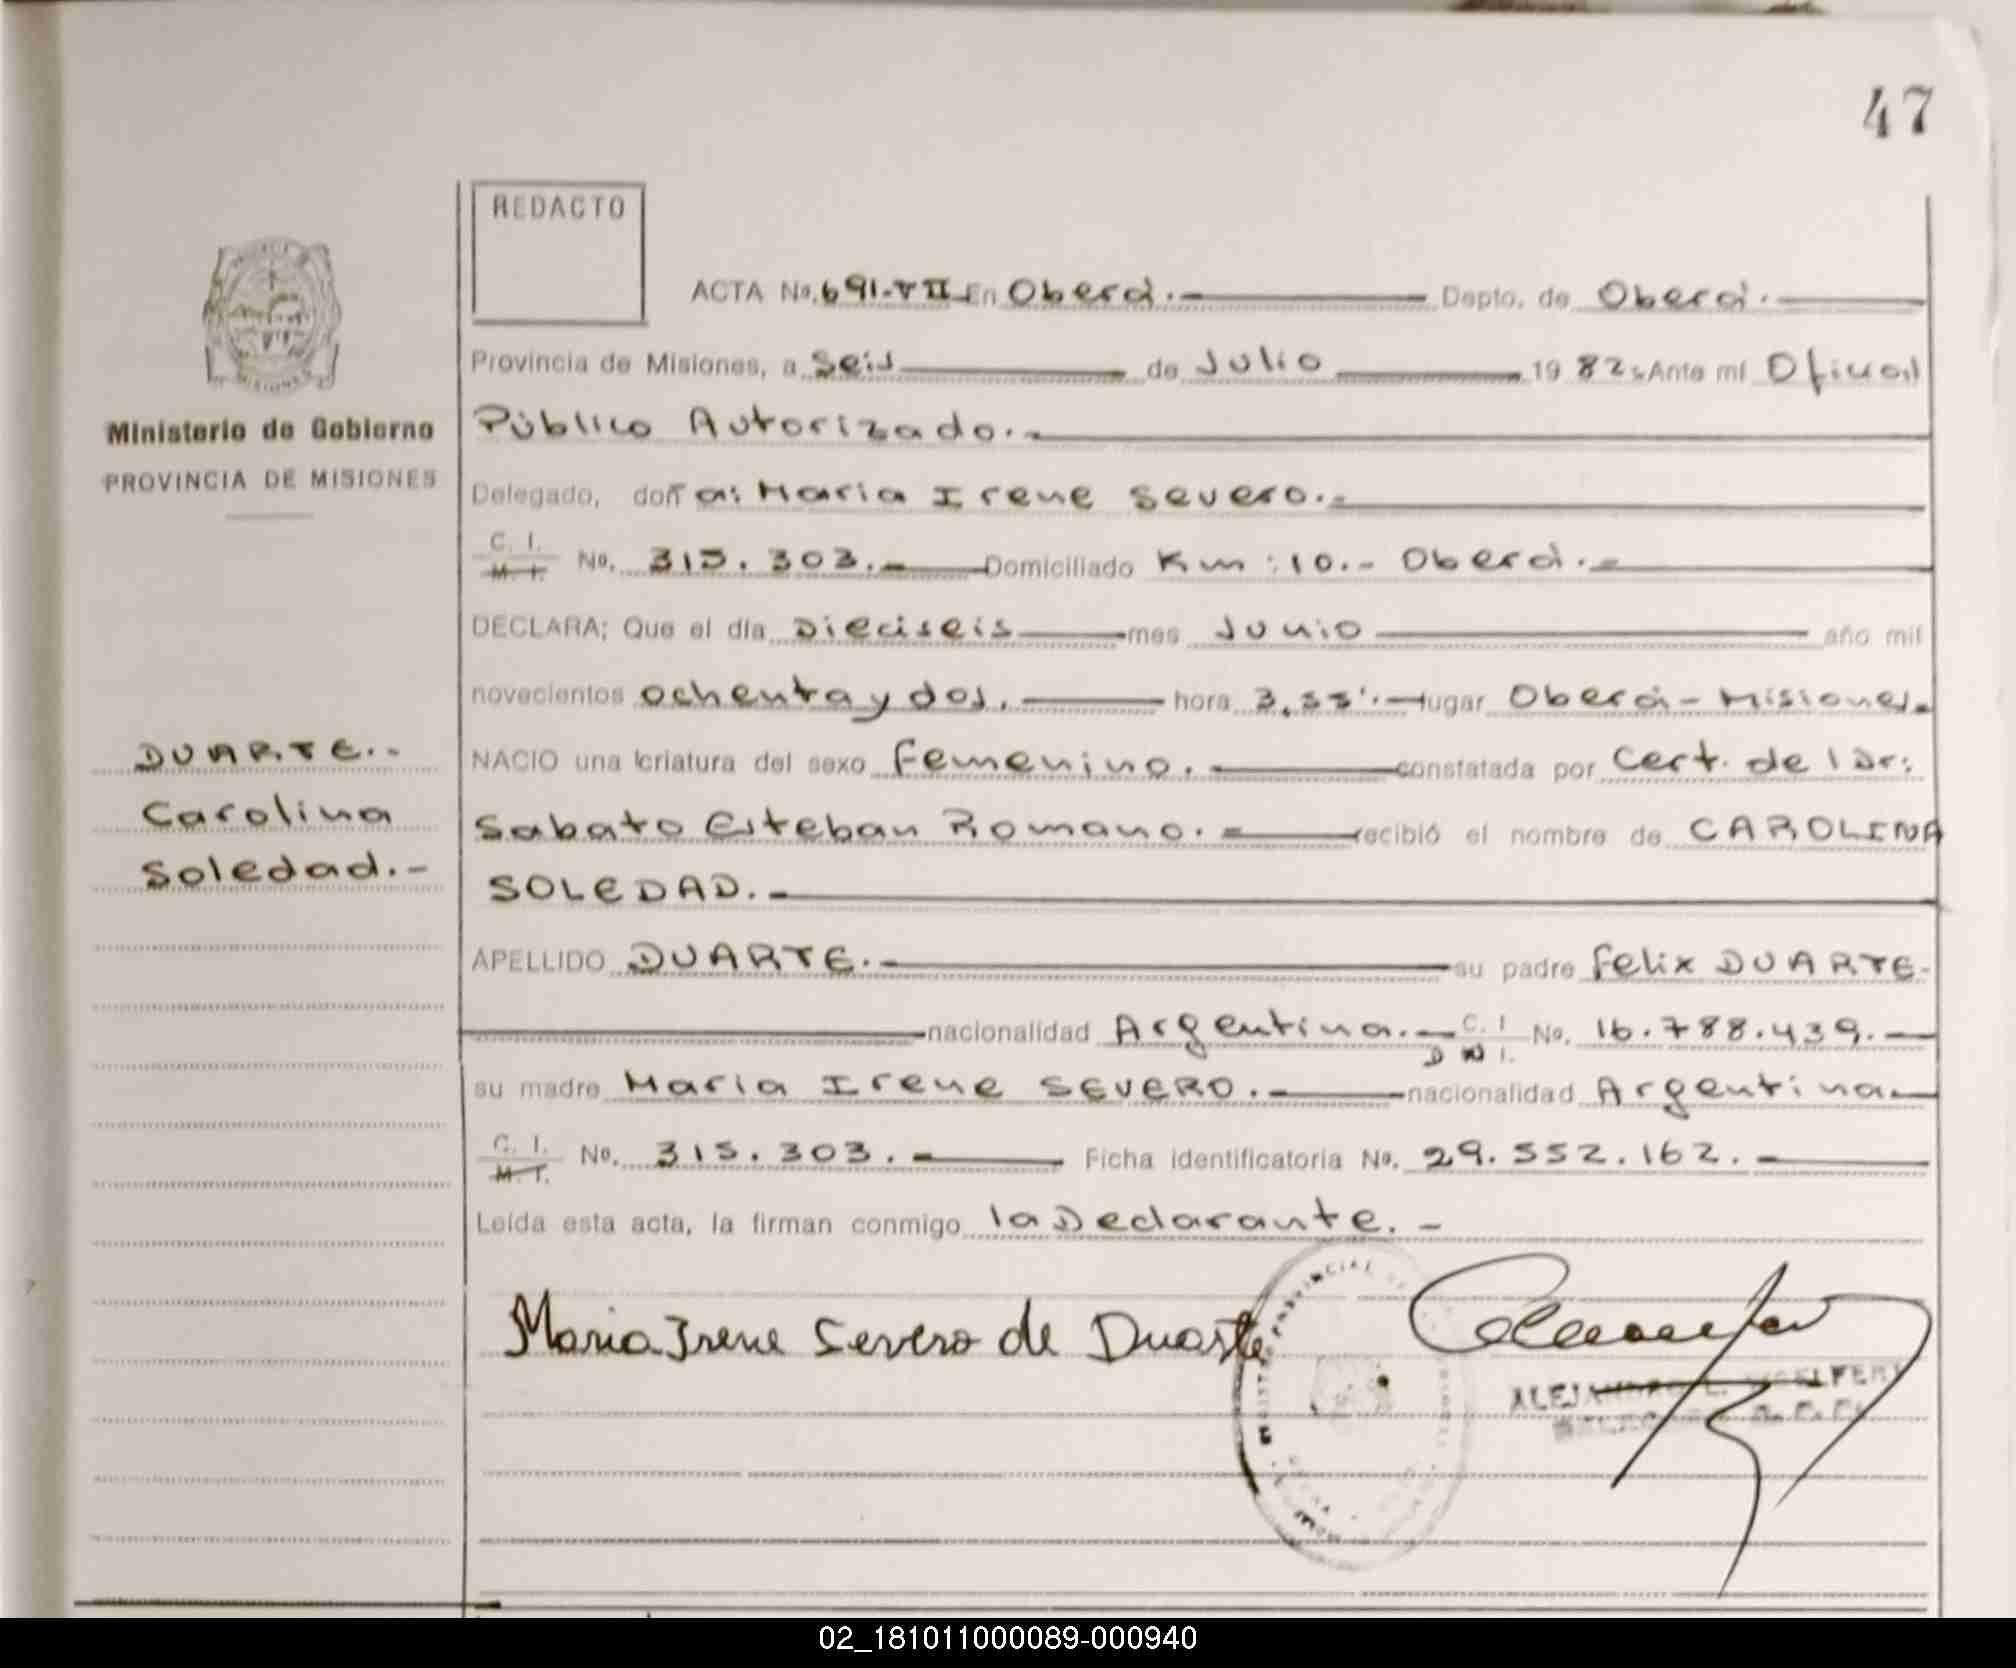 47
REDACTO
ACTA No. 691-VII En Oberá.- Depto. de Oberá.-
Provincia de Misiones, a Seis de Julio 1982. Ante mí Oficial
Público Autorizado.-
Ministerio de Gobierno
PROVINCIA DE MISIONES
Delegado, doña: Maria Irene Severo.-
C. I.
M. I. No. 315.303.- Domiciliado Km: 10.- Oberá.-
DECLARA; Que el día Dieciseis mes Junio año mil
novecientos ochenta y dos. hora 3,55'.- lugar Oberá - Misiones.
NACIO una criatura del sexo Femenino. constatada por Cert. del Dr:
Sabato Esteban Romano.- recibió el nombre de CAROLINA
SOLEDAD.-
DUARTE.-
Carolina
Soledad.-
APELLIDO DUARTE.- su padre Felix DUARTE-
nacionalidad Argentina.- C. I No. 16.788.439.-
D N I.
su madre Maria Irene SEVERO.- nacionalidad Argentina
C. I.
M. I. No. 315.303.- Ficha identificatoria No. 29.552.162.-
Leída esta acta, la firman conmigo la Declarante.-
Maria Irene Severo de Duarte
02_181011000089-000940